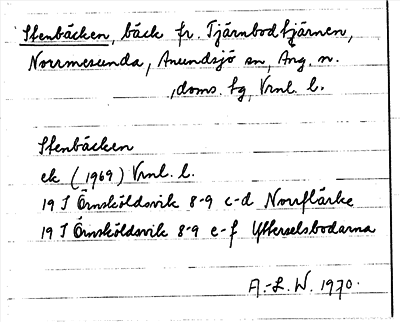 Stenbäcken, bäck fr. Tjärnbodtjärnen,
Norrmesunda, Anundsjö sn, Ång. n.
, doms. tg, Vrnl. l.
Stenbäcken
ek (1969) Vrnl. l.
19 J Örnsköldsvik 8-9 c-d Norrflärke
19 J Örnsköldsvik 8-9 e-f Ytterselsbodarna
A.-L. W. 1970.